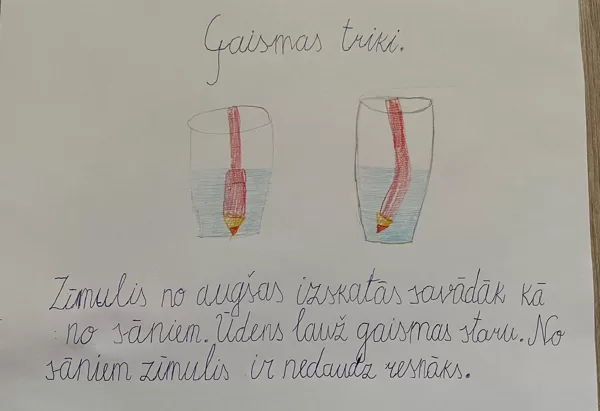 Gaismas triki.
Zīmulis no augšas izskatās savādāk kā
no sāniem. Ūdens lauž gaismas staru. No
sāniem zīmulis ir nedaudz resnāks.